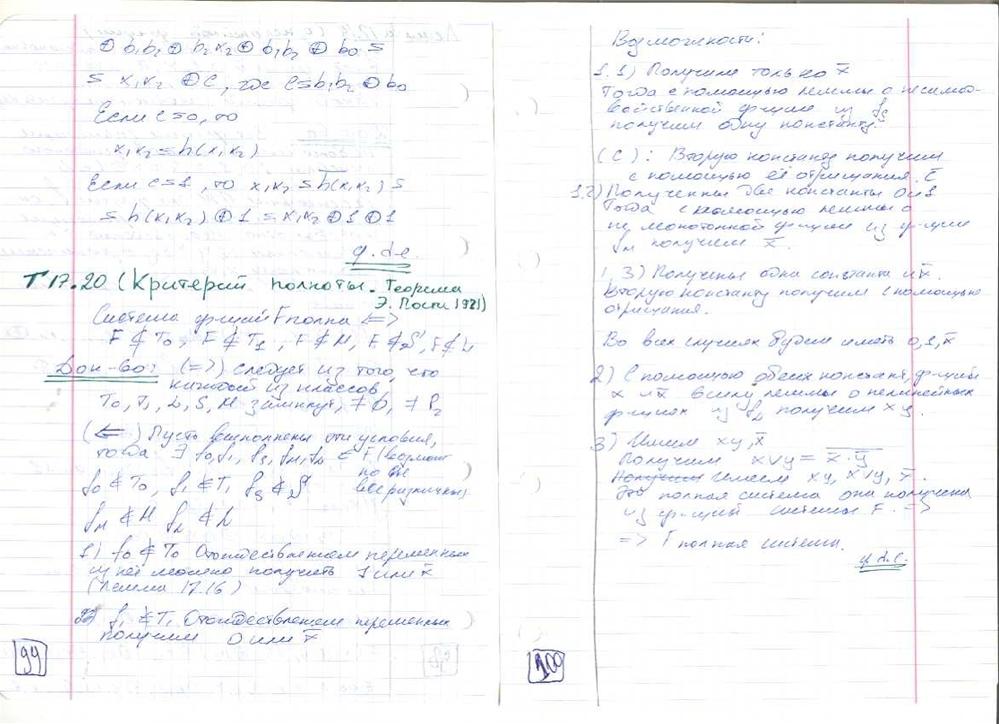 ⊕ b₁b₂ ⊕ b₂x₂ ⊕ b₁b₂ ⊕ b₀ =
= x₁x₂ ⊕ C, где C = b₁b₂ ⊕ b₀
Если C=0, то
x₁x₂ = h(x₁x₂)
Если C=1, то x₁x₂ = h̅(x₁x₂) =
= h(x₁x₂) ⊕ 1 = x₁x₂ ⊕ 1 ⊕ 1
q.d.e.
Т 17.20 (Критерий полноты. Теорема
Э. Поста 1921)
Система ф-ций F полна <=>
F ⊄ T₀, F ⊄ T₁, F ⊄ M, F ⊄ S, F ⊄ L
Док-во: (=>) следует из того, что
каждый из классов
T₀, T₁, L, S, M замкнут, ≠ ∅, ≠ P₂
(<=) Пусть выполнены эти условия,
тогда: ∃ f₀, f₁, fₛ, fₘ, f_L ∈ F (возможно
не все
различны)
f₀ ∉ T₀, f₁ ∉ T₁, fₛ ∉ S
fₘ ∉ M f_L ∉ L
1) f₀ ∉ T₀ Отождествлением переменных
из неё можно получить 1 или x̅
(Лемма 17.16)
f₁ ∉ T₁ Отождествлением переменных
получим 0 или x̅
99
Возможности:
1.1) Получили только x̅
Тогда с помощью леммы о несамод-
войственной ф-ции из fₛ
получим одну константу.
(C): Вторую константу получим
с помощью её отрицания. C̅
1.2) Получены две константы 0 и 1
Тогда с помощью леммы о
не монотонной ф-ции из ф-ции
fₘ получим x̅.
1.3) Получены одна константа и x̅.
Вторую константу получим с помощью
отрицания.
Во всех случаях будем иметь 0, 1, x̅
2) С помощью обеих констант, ф-ций
x и x̅ в силу леммы о нелинейных
ф-циях из f_L получим xy.
3) Имеем xy, x̅
Получим x∨y = x̅·y̅
имеем xy, x∨y, x̅.
Это полная система они получена
из ф-ций системы F. =>
=> F полная система.
q.d.e.
100